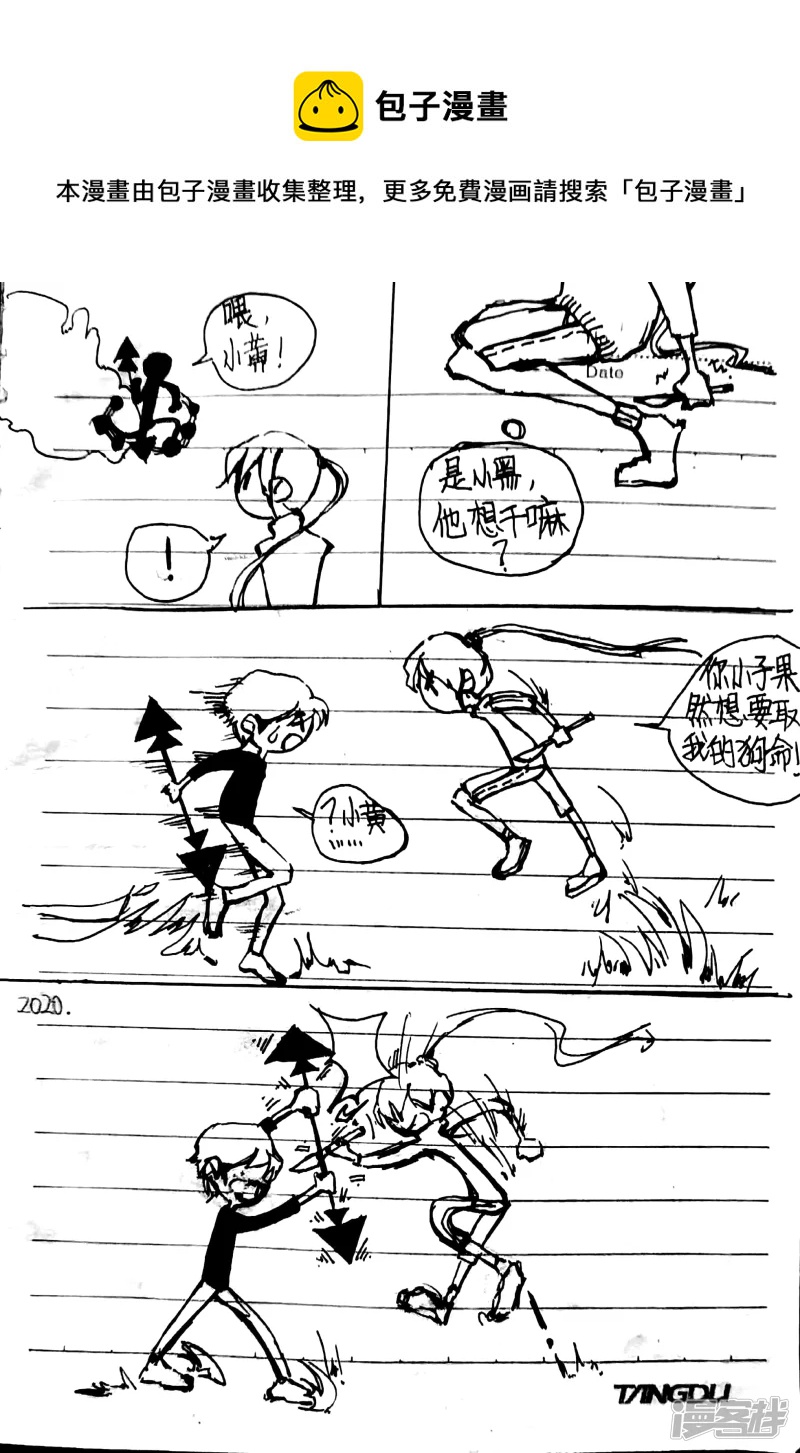 包子漫畫
本漫畫由包子漫畫收集整理，更多免費漫画請搜索「包子漫畫」
喂，
小黄！
！
Date
是小黑，
他想干嘛
？
你小子果
然想要取
我的狗命！
？小黄
……
2020.
TANGDU
漫客栈